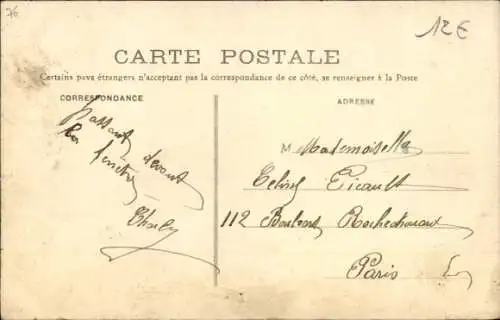 76
12€
CARTE POSTALE
Certains pays étrangers n'acceptant pas la correspondance de ce côté, se renseigner à la Poste
CORRESPONDANCE
Passant
devant
fenêtre
ADRESSE
M Mademoiselle
Picault
112 Boulevart Rochechouart
Paris